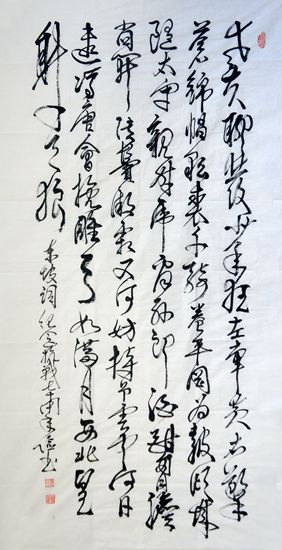 老夫聊發少年狂左牽黃右擎
蒼錦帽貂裘千騎卷平岡為報傾城
隨太守親射虎看孫郎酒酣胸膽
尚開張鬢微霜又何妨持節雲中何日
遣馮唐會挽雕弓如滿月西北望
射天狼
東坡詞紀念抗戰 書